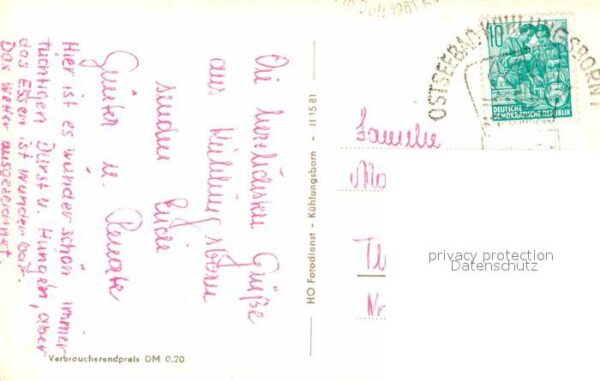 Die herzlichsten Grüße
aus Kühlungsborn
senden Euch
Günter u. Renate
Hier ist es wunder schön, immer
tüchtigen Durst u. Hunger, aber
das Essen ist wunderbar.
Das Wetter ausgezeichnet.
Verbraucherendpreis DM 0.20
HO Fotodienst - Kühlungsborn - II 1581
1961
OSTSEEBAD KÜHLUNGSBORN 1
10
DEUTSCHE
DEMOKRATISCHE REPUBLIK
5
Familie
privacy protection
Datenschutz